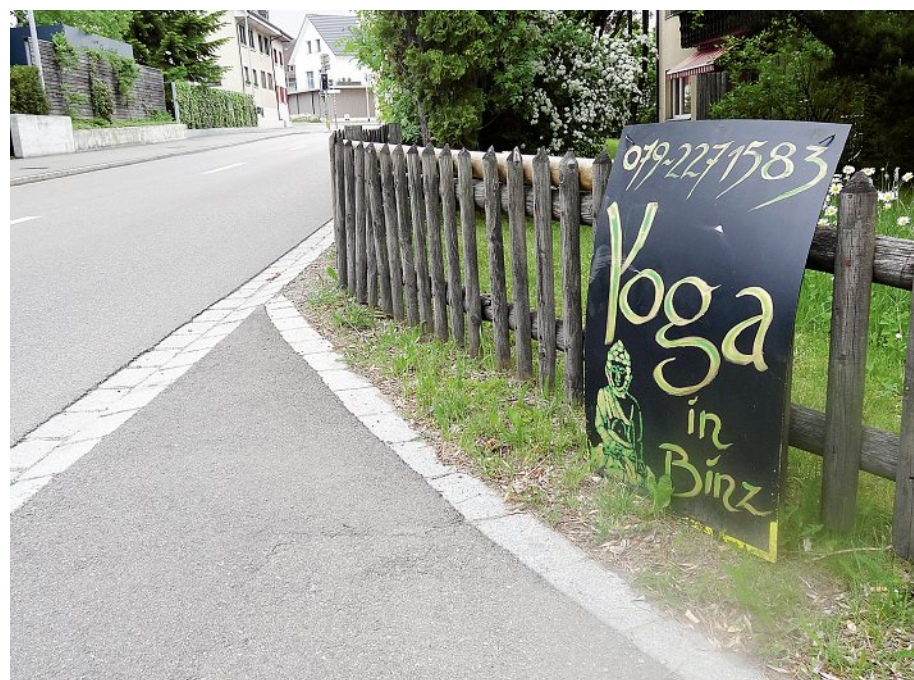 079-2271583
Yoga
in
Binz